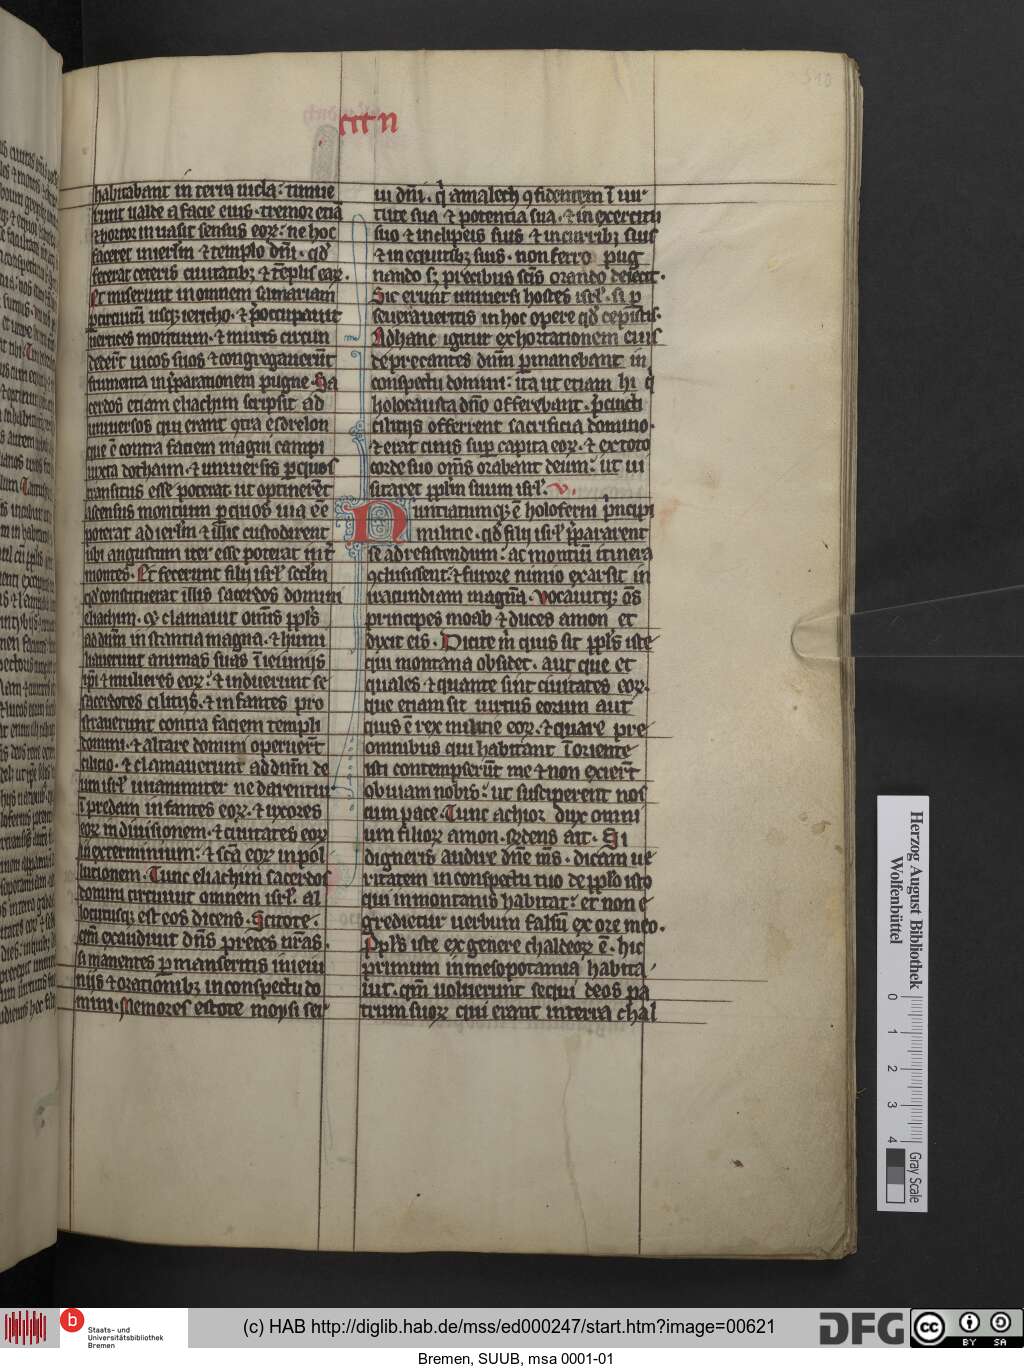 habitabant in terra iuda: timue
runt ualde a facie eius. tremor etiā
⁊ horror inuasit sensus eoꝝ: ne hoc
faceret in ierlm̄ ⁊ templo dn̄i. qd̓
fecerat ceteris ciuitatibꝫ ⁊ tēplis eaꝝ.
Et miserunt in omnem samariam
ꝑ circuitū usqꝫ iericho. ⁊ p̄occupauit
uertices montium. ⁊ muris circum
dedert̄ uicos suos ⁊ congregauerūt
frumenta in p̄parationem pugne. Sa
cerdos etiam eliachim scripsit ad
uniuersos qui erant ꝯtra esdrelon
que ē contra faciem magni campi
iuxta dothaim. ⁊ uniuersis ꝑ quos
transitus esse poterat. ut optinerēt
ascensus montium ꝑ quos uia eē
poterat ad ierlm̄ ⁊ illic custodirent
ubi angustum iter esse poterat int̄
montes. Et fecerunt filii isrl̓ scdm̄
qd̓ constituerat illis sacerdos domini
eliachim. ⁊ clamauit omīs ppl̓s
ad dūm instantia magna. ⁊ humi
liauerunt animas suas ī ieiuniis
ip̄i ⁊ mulieres eoꝝ: ⁊ induerunt se
sacerdotes ciliciis. ⁊ infantes pro
strauerunt contra faciem templi
domini. ⁊ altare domini operuert̄
cilicio. ⁊ clamauerunt ad dnm̄ de
um isrl̓ unanimiter ne darentur
ī predam infantes eoꝝ. ⁊ uxores
eoꝝ in diuisionem. ⁊ ciuitates eoꝝ
in exterminium: ⁊ scā eoꝝ in pol
lutionem. Tunc eliachim sacerdos
domini circuiuit omnem isrl̓. al
locutusqꝫ est eos dicens. Scitote.
qm̄ exaudiuit dn̄s preces ur̄as.
si manentes ꝑmanseritis in ieiu
niis ⁊ orationibꝫ in conspectu do
mini. Memores estote moysi ser
ui dn̄i. q̓ amalech ꝯfidentem ī uir
tute sua ⁊ potentia sua. ⁊ in exercitu
suo ⁊ in clipeis suis ⁊ in curribꝫ suis
⁊ in equitibꝫ suis. non ferro pug
nando sꝫ precibus scīs orando deiecit.
Sic erunt uniuersi hostes isrl̓. si ꝑ
seueraueritis in hoc opere qd̓ cepistis.
Ad hanc igitur exhortationem eius
deprecantes dnm̄ ꝑmanebant in
conspectu domini: ita ut etiam hi q̓
holocausta dn̄o offerebant. p̄cincti
ciliciis offerrent sacrificia domino.
⁊ erat cinis suꝑ capita eoꝝ. ⁊ ex toto
corde suo omīs orabant deum: ut ui
sitaret ppl̓m suum isrl̓. v.
Nuntiatumqꝫ ē holoferni p̓ncipi
militie. qd̓ filii isrl̓ p̄pararent
se ad resistendum: ac montiū itinera
ꝯclusissent: ⁊ furore nimio exarsit in
iracundiam magnā. Vocauitqꝫ oīs
principes moab ⁊ duces amon et
dixit eis. Dicite m̓ quis sit ppl̓s iste
qui montana obsidet. aut que et
quales ⁊ quante sint ciuitates eoꝝ.
que etiam sit uirtus eorum aut
quis ē rex militie eoꝝ. ⁊ quare pre
omnibus qui habitant ī oriente
isti contempserūt me ⁊ non exiert̄
obuiam nobis: ut susciperent nos
cum pace. Tunc achior dux omni
um filioꝝ amon. Rr̄dens ait. Si
digneris audire dn̄e mīs. dicam ue
ritatem in conspectu tuo de ppl̓o isto
qui in montanis habitat: et non e
gredietur uerbum falsū ex ore meo.
Ppl̓s iste ex genere chaldeoꝝ ē. hic
primum in mesopotamia habita
uit. qm̄ noluerunt sequi deos pa
trum suoꝝ qui erant in terra chal
510
Herzog August Bibliothek
Wolfenbüttel
0 1 2 3 4
Gray Scale
b
Staats- und
Universitätsbibliothek
Bremen
(c) HAB http://diglib.hab.de/mss/ed000247/start.htm?image=00621
DFG
cc
BY SA
Bremen, SUUB, msa 0001-01